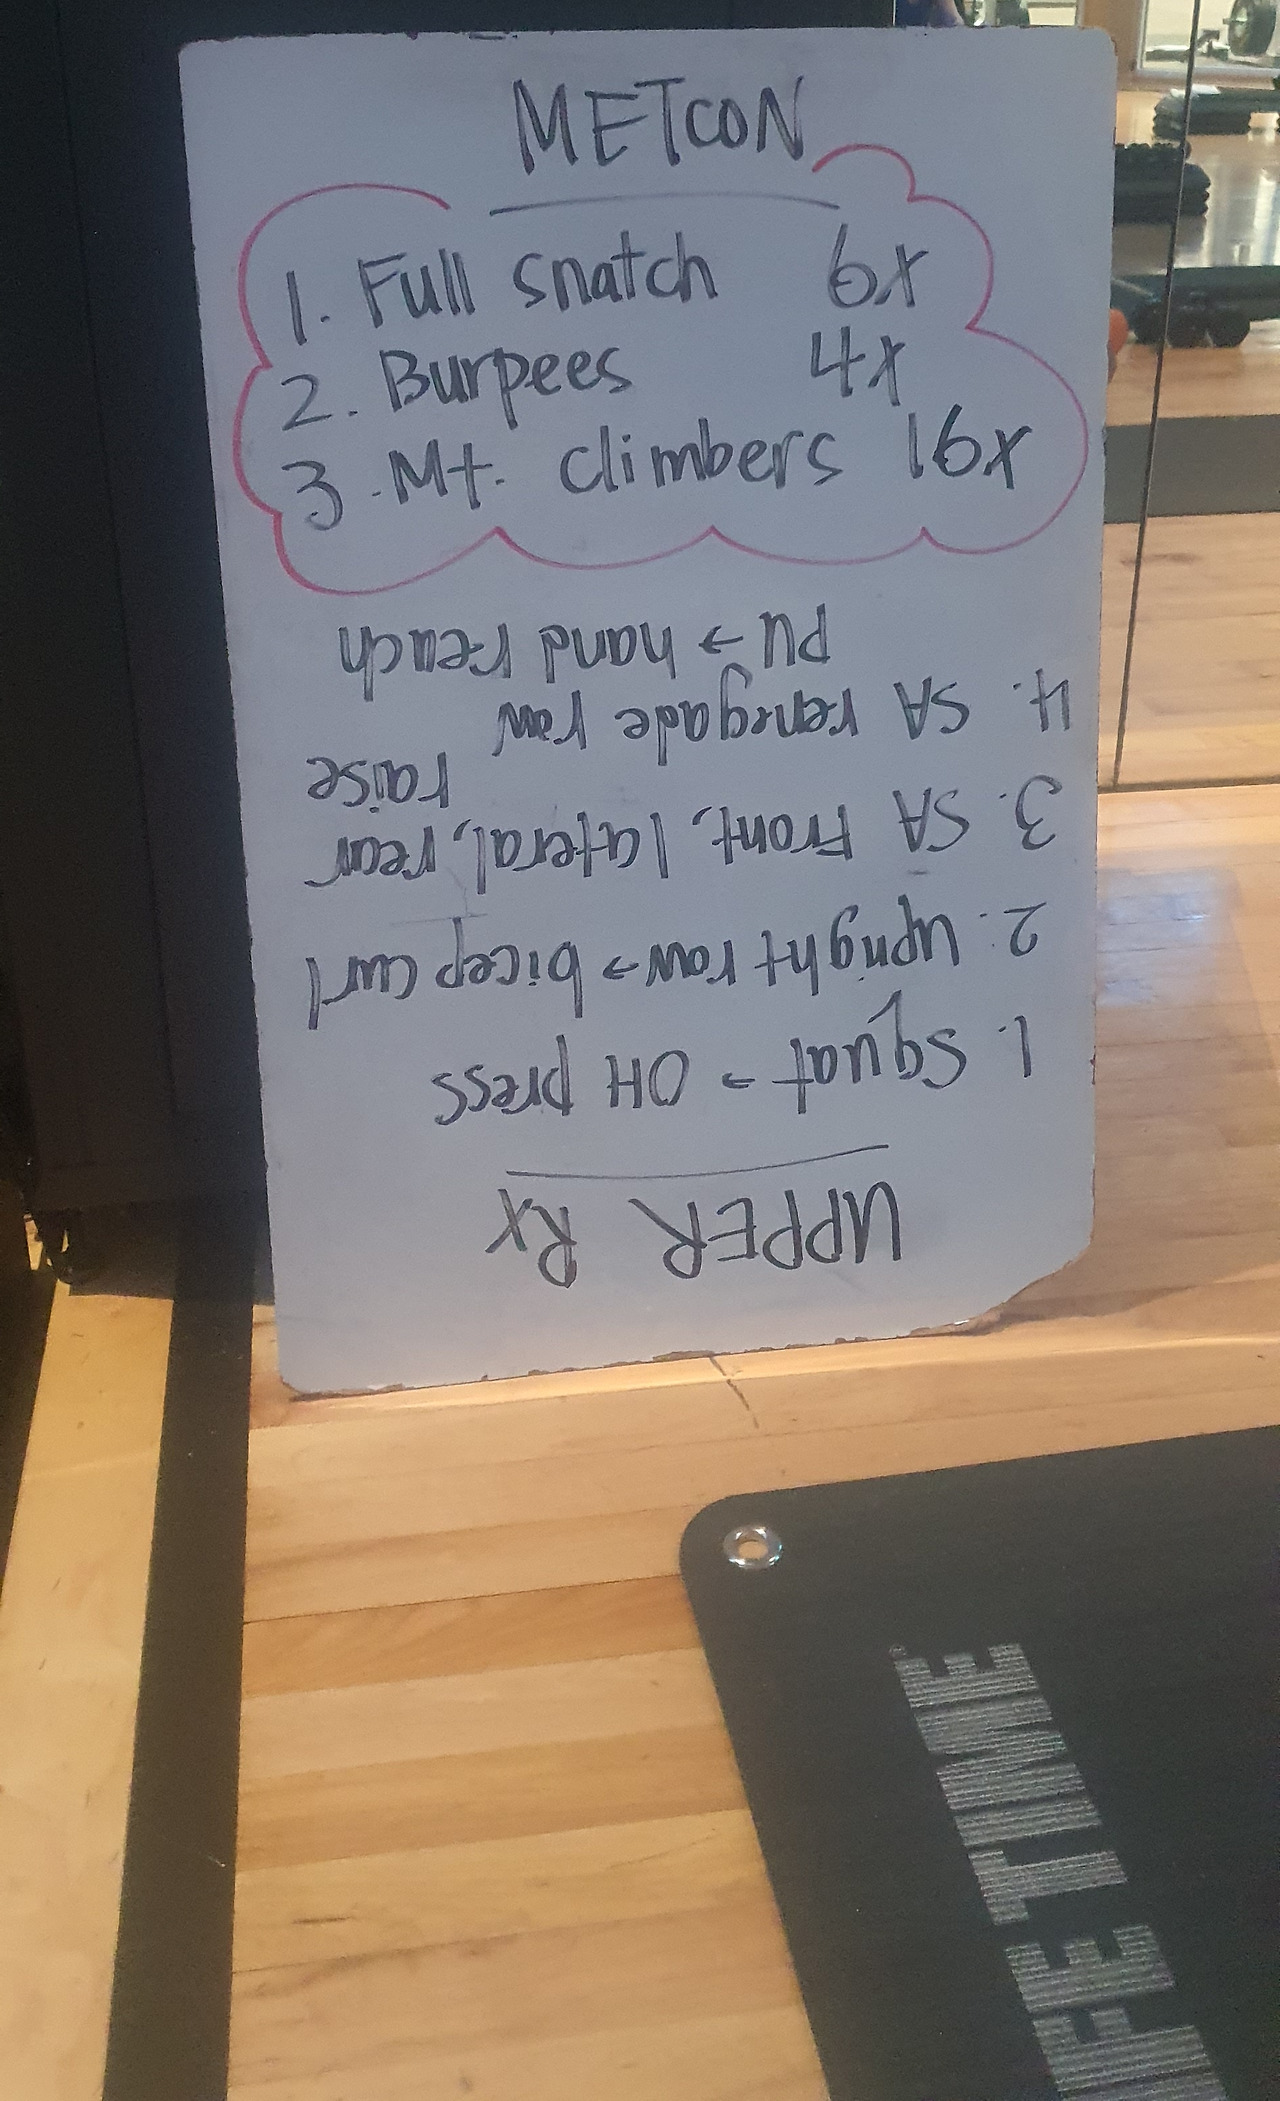 METCON
1. Full snatch 6x
2. Burpees 4x
3. Mt. climbers 16x
UPPER Rx
1. Squat → OH press
2. upright row → bicep curl
3. SA Front, lateral, rear
raise
4. SA renegade row
PU → hand reach
FE TIME